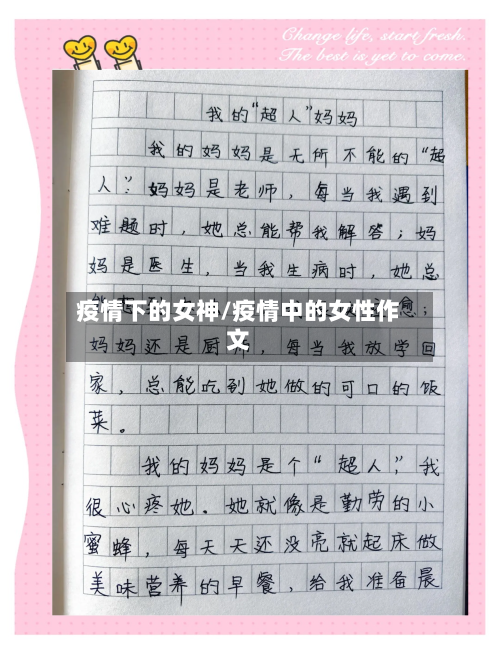 Change life, start fresh.
The best is yet to come.
我的“超人”妈妈
我的妈妈是无所不能的“超
人”：妈妈是老师，每当我遇到
难题时，她总能帮我解答；妈
妈是医生，当我生病时，她总
疫情下的女神/疫情中的女性作
文
愈；
妈妈还是厨师，每当我放学回
家，总能吃到她做的可口的饭
菜。
我的妈妈是个“超人”，我
很心疼她。她就像是勤劳的小
蜜蜂，每天天还没亮就起床做
美味营养的早餐，给我准备晨